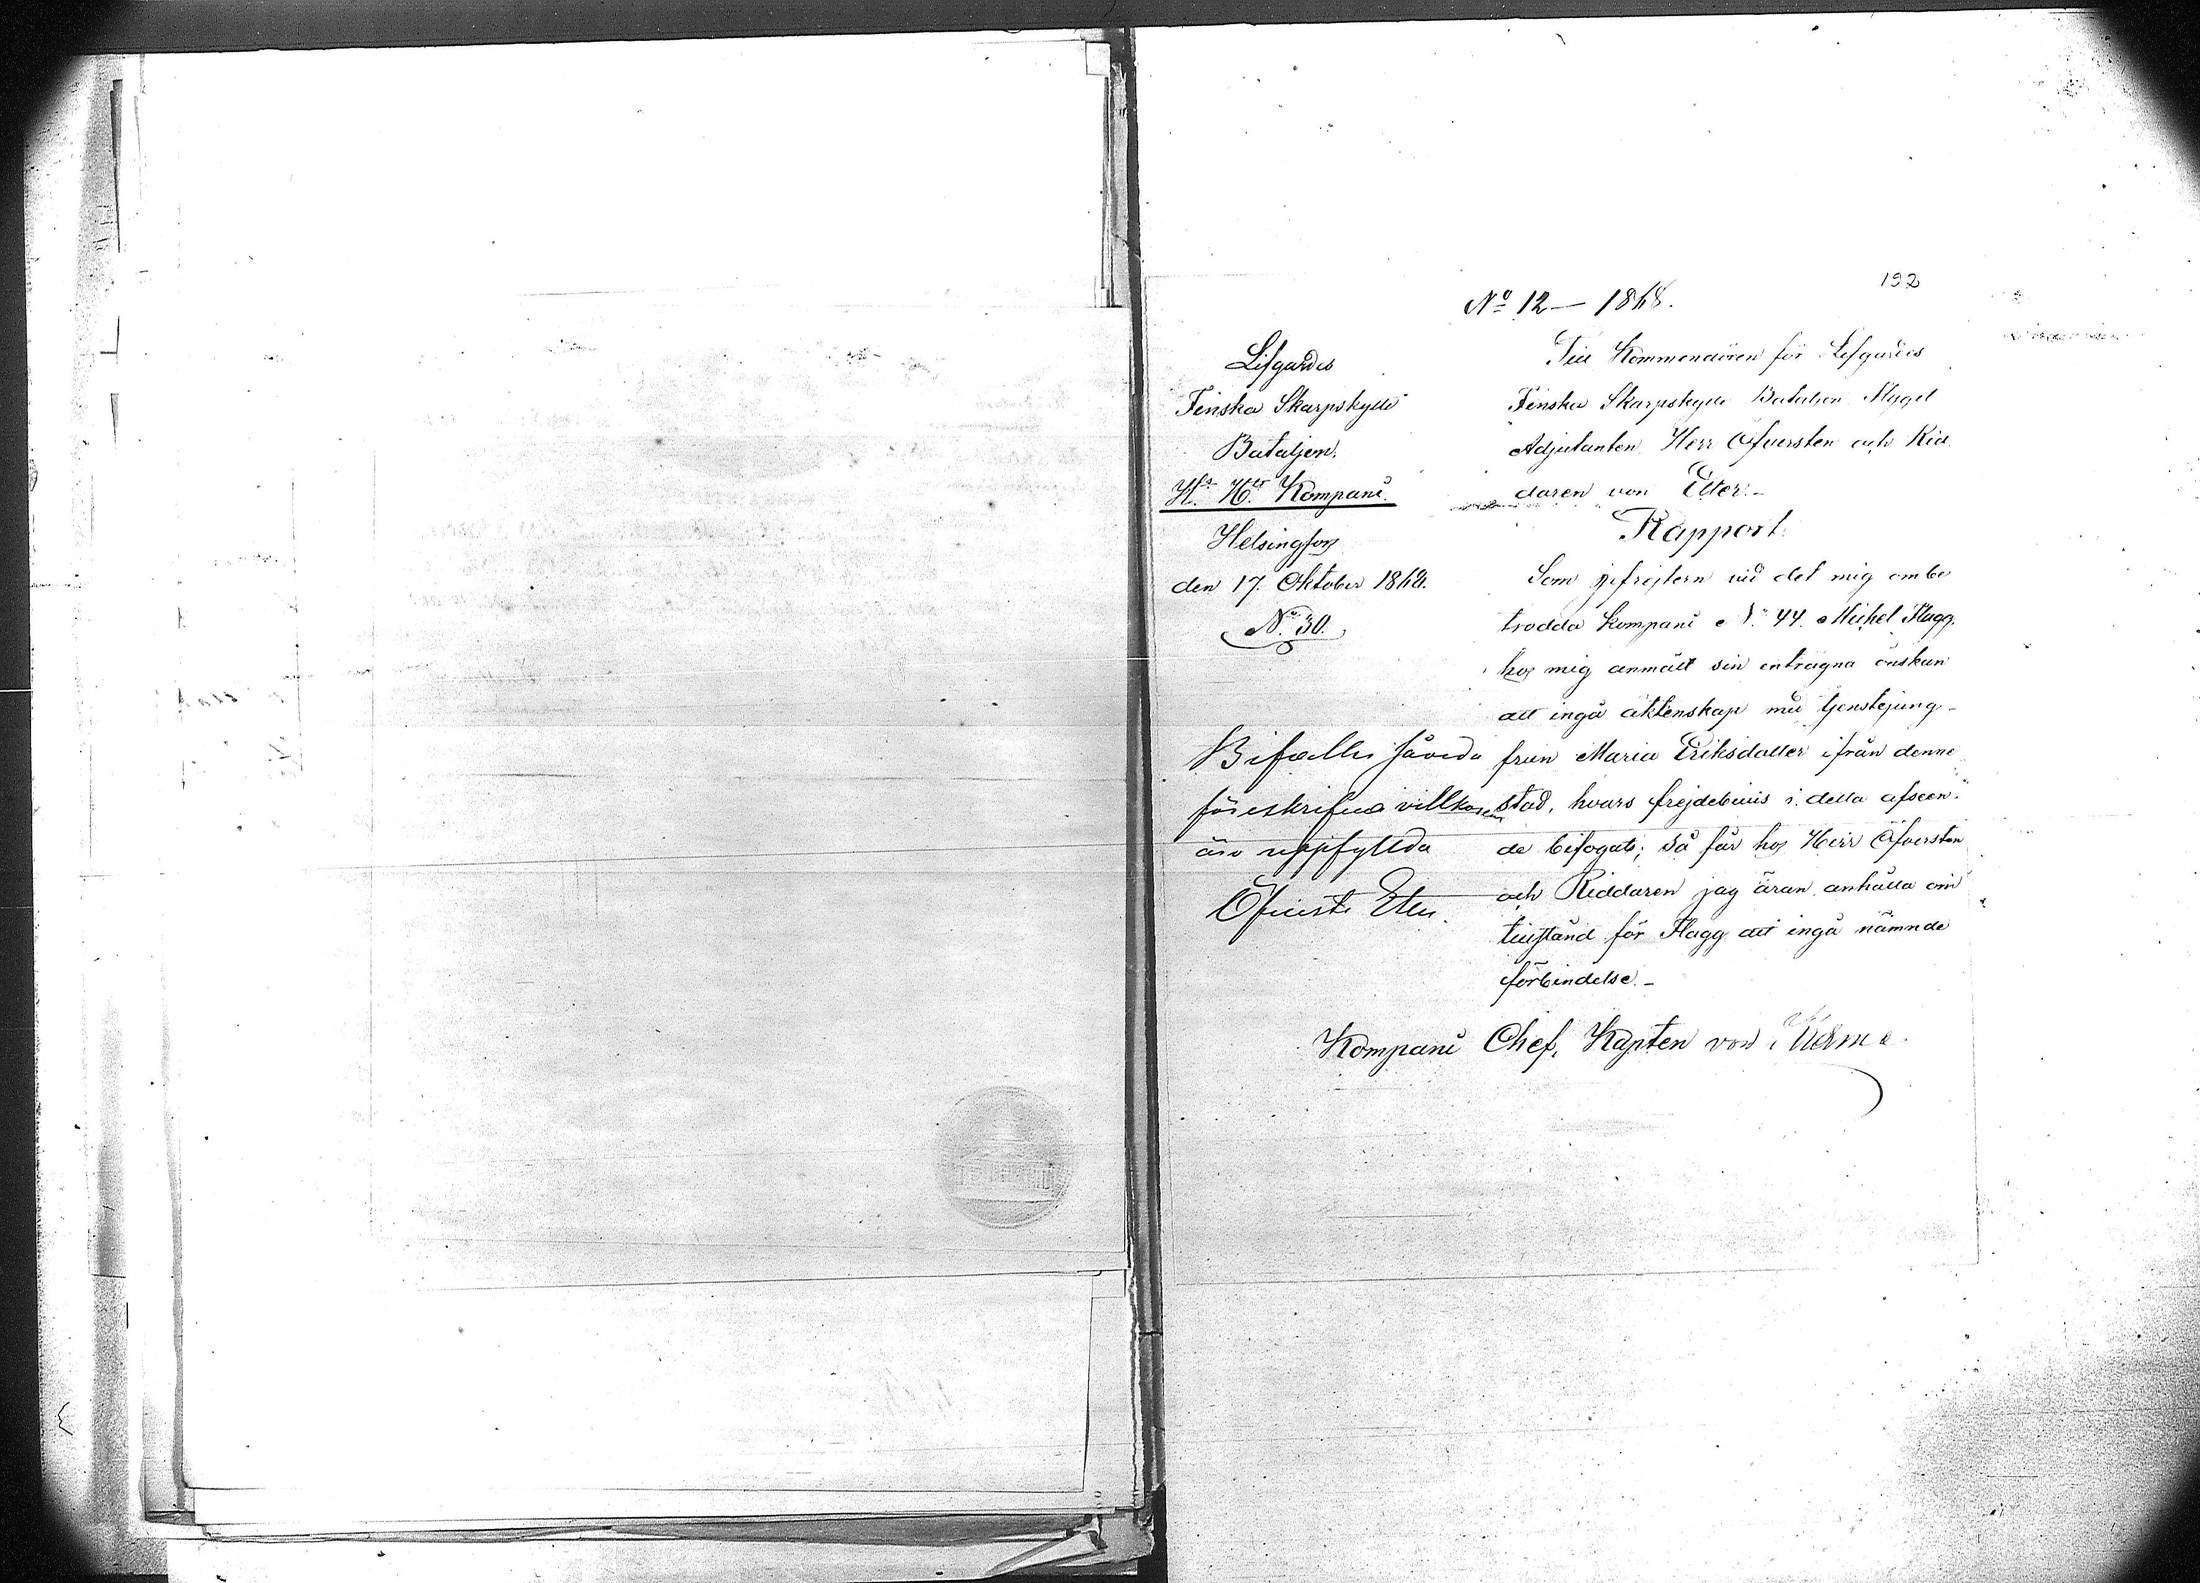 192
No 12 – 1868.
Lifgardes
Finska Skarpskytte
Bataljon.
Hs. Hts Kompani.
Helsingfors
den 17. Oktober 1868.
No. 30.
Till Kommendören för Lifgardes
Finska Skarpskytte Bataljon Flygel
Adjutanten Herr Öfversten och Rid
daren von Etter. –
Rapport.
Som gefrejtern vid det mig ombe
trodda kompani No. 44. Michel Flagg.
hos mig anmält sin enträgna önskan
att ingå äktenskap med tjenstejung-
frun Maria Eriksdotter ifrån denne
stad, hvars frejdebevis i detta afseen-
de bifogats; så får hos Herr Öfversten
och Riddaren jag äran anhålla om
tillstånd för Flagg att ingå nämnde
förbindelse. –
Bifalles såvida
föreskrifna villkoren
äro uppfyllda
Öfverste Etter.
Kompani Chef, Kapten von